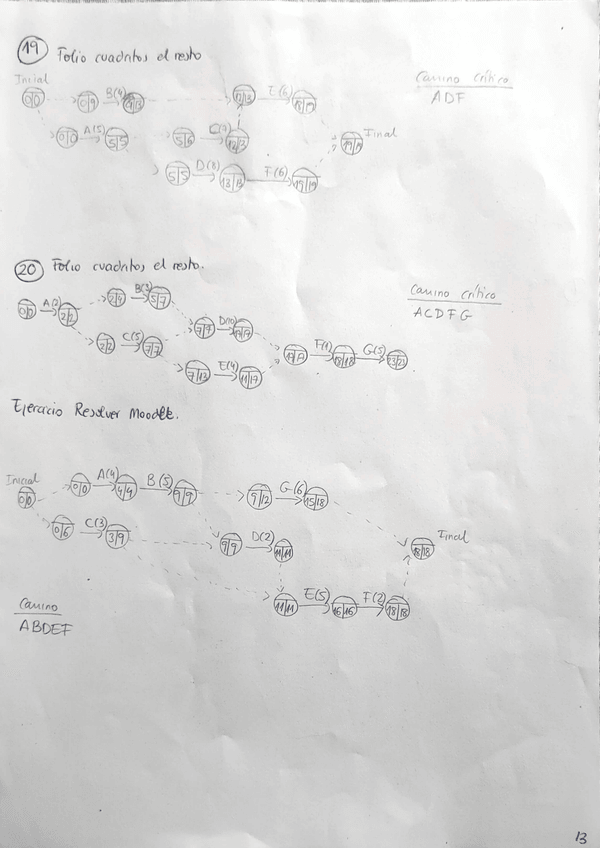 19 Folio cuadritos el resto
Inicial
Camino crítico
ADF
0|0 0|9 B(4) 12|13 E(6) 18|19
0|0 A(5) 5|5 5|6 C(7) 12|13 19|19 Final
5|5 D(8) 13|13 F(6) 19|19
20 Folio cuadritos el resto.
Camino crítico
ACDFG
0|0 A(2) 2|2 2|4 B(3) 5|7
2|2 C(5) 7|7 7|7 D(10) 17|17
7|13 E(4) 11|17 17|17 F(1) 18|18 G(5) 23|23
Ejercicio Resolver Moodle.
Inicial
0|0 0|0 A(4) 4|4 B(5) 9|9 9|12 G(6) 15|18
0|6 C(3) 3|9 9|9 D(2) 11|11 18|18 Final
11|11 E(5) 16|16 F(2) 18|18
Camino
ABDEF
13